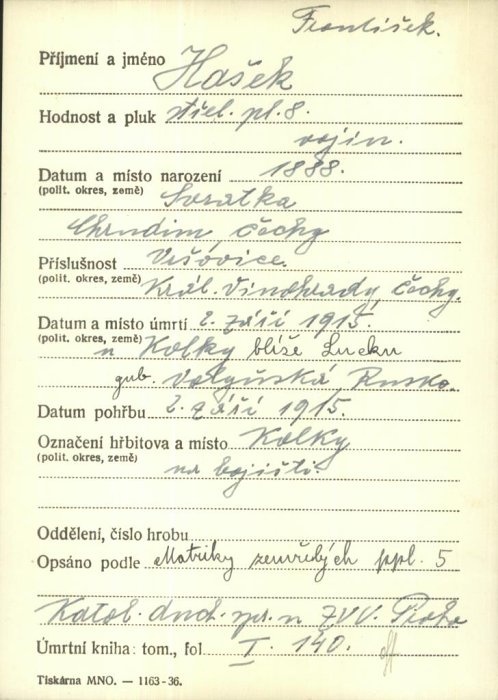 František.
Příjmení a jméno Hašek
Hodnost a pluk střel. pl. 8.
vojín.
Datum a místo narození 1888.
(polit. okres, země) Svratka
Chrudim, Čechy
Příslušnost Vršovice.
(polit. okres, země) Král. Vinohrady, Čechy.
Datum a místo úmrtí 2. září 1915.
(polit. okres, země) u Kolky blíže Lucku
gub. Volyňská, Rusko.
Datum pohřbu 2. září 1915.
Označení hřbitova a místo Kolky
(polit. okres, země) na bojišti.
Oddělení, číslo hrobu
Opsáno podle Matriky zemřelých ppl. 5
Katol. duch. spr. u ZVV. Praha
Úmrtní kniha: tom., fol. I. 140.
Tiskárna MNO. — 1163-36.